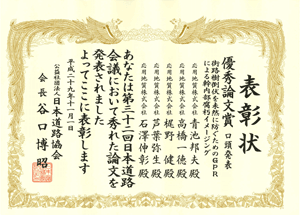 表彰状
優秀論文賞 口頭発表
街路樹倒伏を未然に防ぐためのGPR
による幹内部腐朽イメージング
応用地質株式会社 青池邦夫殿
応用地質株式会社 高橋一徳殿
応用地質株式会社 梶野健殿
応用地質株式会社 芦葉弥生殿
応用地質株式会社 石澤伸彰殿
あなたは第三十二回日本道路
会議において秀れた論文を
発表されました
よってここに表彰します
平成二十九年十一月一日
公益社団法人 日本道路協会
会長 谷口博昭